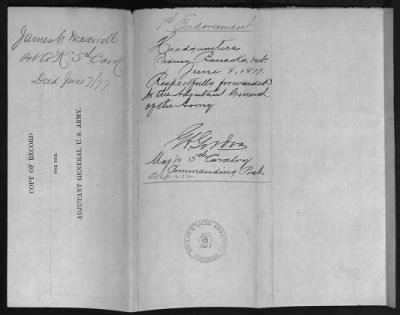 James C. Maxwell
Pvt Co "K" 5th Cavy
Died June 7/77
COPY OF RECORD
FOR THE
ADJUTANT GENERAL U.S. ARMY.
1st Endorsement
Headquarters
Sidney Barracks, Neb
June 8, 1877.
Respectfully forwarded
to the Adjutant General
of the Army
Major 5th Cavalry
Commanding Post.